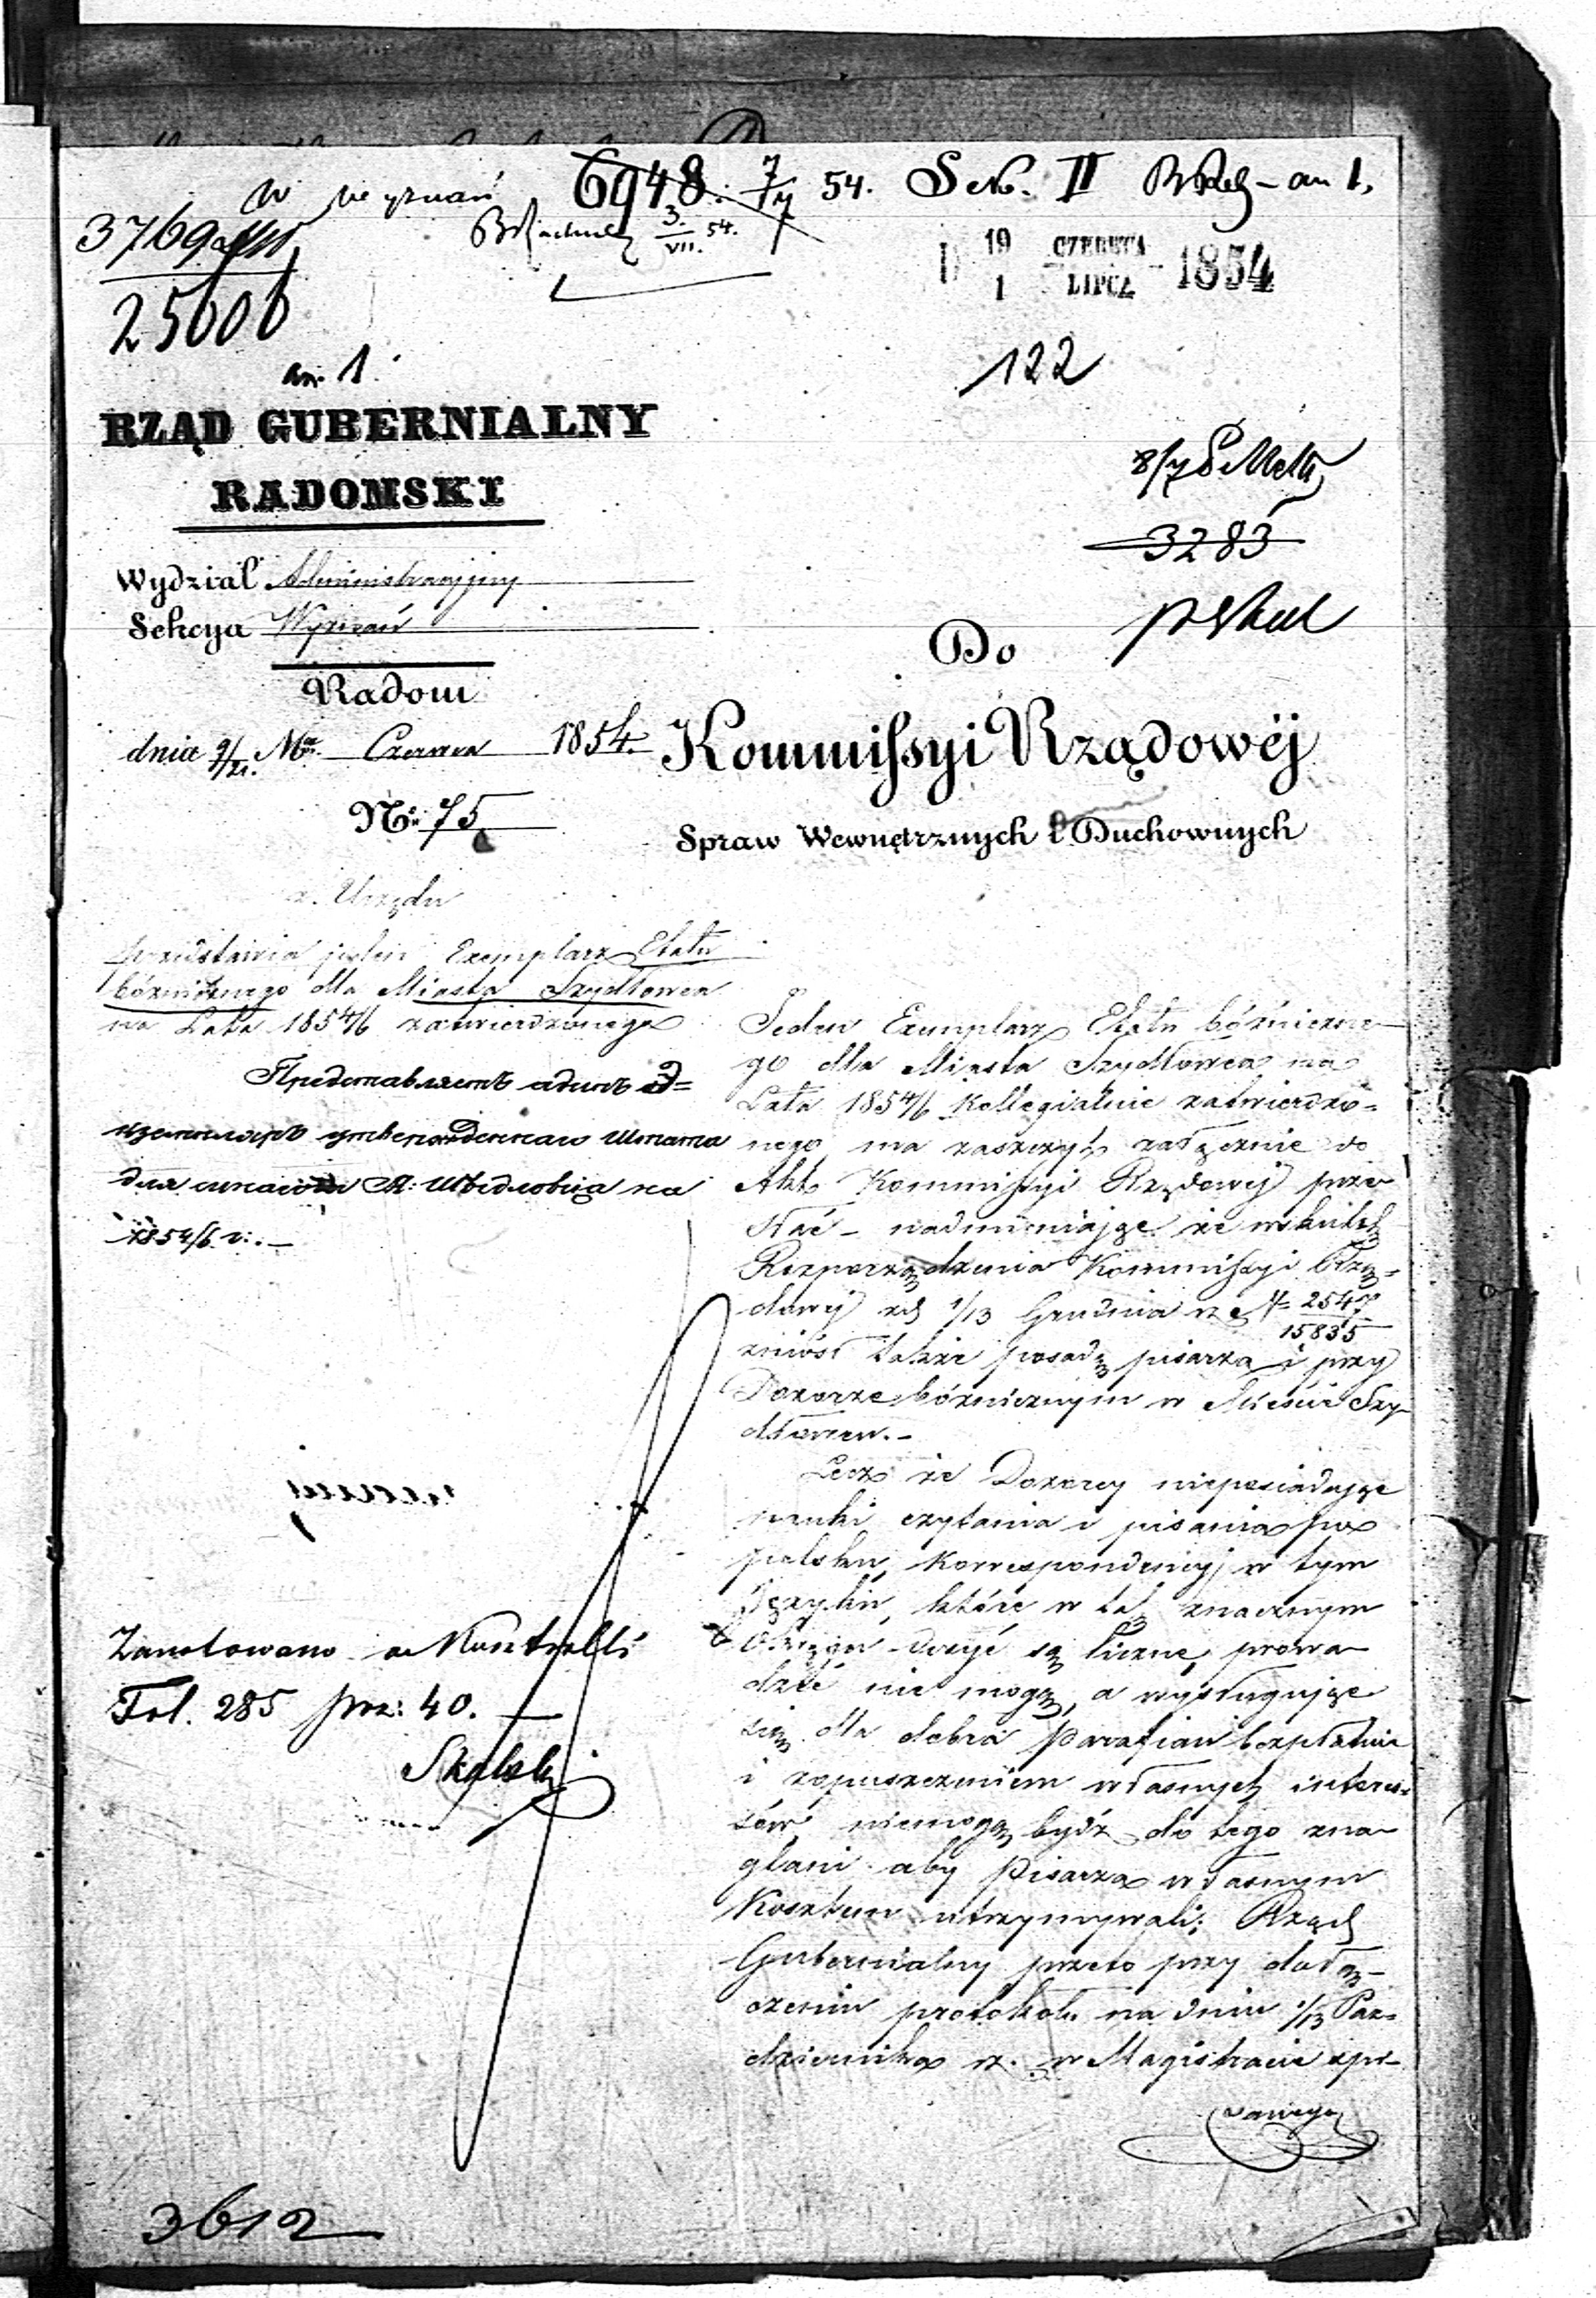 W wyznań 6948. 7/7 54. Sek. II
3769
25000
3. VII. 54.
19 CZERWCA
1 LIPCA 1854
an. 1.
122
RZĄD GUBERNIALNY
RADOMSKI
3283
Wydział Administracyjny
Sekcya Wyznań
Radom
dnia 9/21. Mca Czerwca 1854.
No 75
Do
Kommissyi Rządowéj
Spraw Wewnętrznych i Duchownych
z Urzędu
przedstawia jeden Exemplarz Etatu
bóżnicznego dla Miasta Szydłowca
na Lata 1854/6 zatwierdzonego
Представляетъ адинъ Э=
кземпляръ утвержденнаго Штата
для М: Шидловца на
1854/6 г: . —
Jeden Exemplarz Etatu bóżniczne-
go dla Miasta Szydłowca na
Lata 1854/6 Kollegialnie zatwierdzo=
nego ma zaszczyt załącznie do
Akt Kommissyi Rządowej prze
słać – nadmieniając że w skutek
Rozporządzenia Kommissyi Rzą=
dowej z d 1/13 Grudnia r z No 2547/15835
zniósł także posadę pisarza i przy
Dozorze bóżnicznym w Mieście Szy-
dłowcu. –
Lecz że Dozorcy nieposiadając
nauki czytania i pisania po
polsku, korrespondencyj w tym
Języku, które w tak znacznym
Okręgu dosyć są liczne, prowa
dzić nie mogą, a wysługując
się dla dobra Parafian bezpłatnie
i z opuszczeniem własnych interes=
sów niemogą bydź do tego zna
glani aby Pisarza własnym
Kosztem utrzymywali; Rząd
Gubernialny przeto przy dołą-
czeniu protokołu na dniu 1/13 Paź=
dziernika r. z. w Magistracie spi-
sanego
Zanotowano w Kontrolli
Fol. 285 poz: 40. —
Skalski
3612